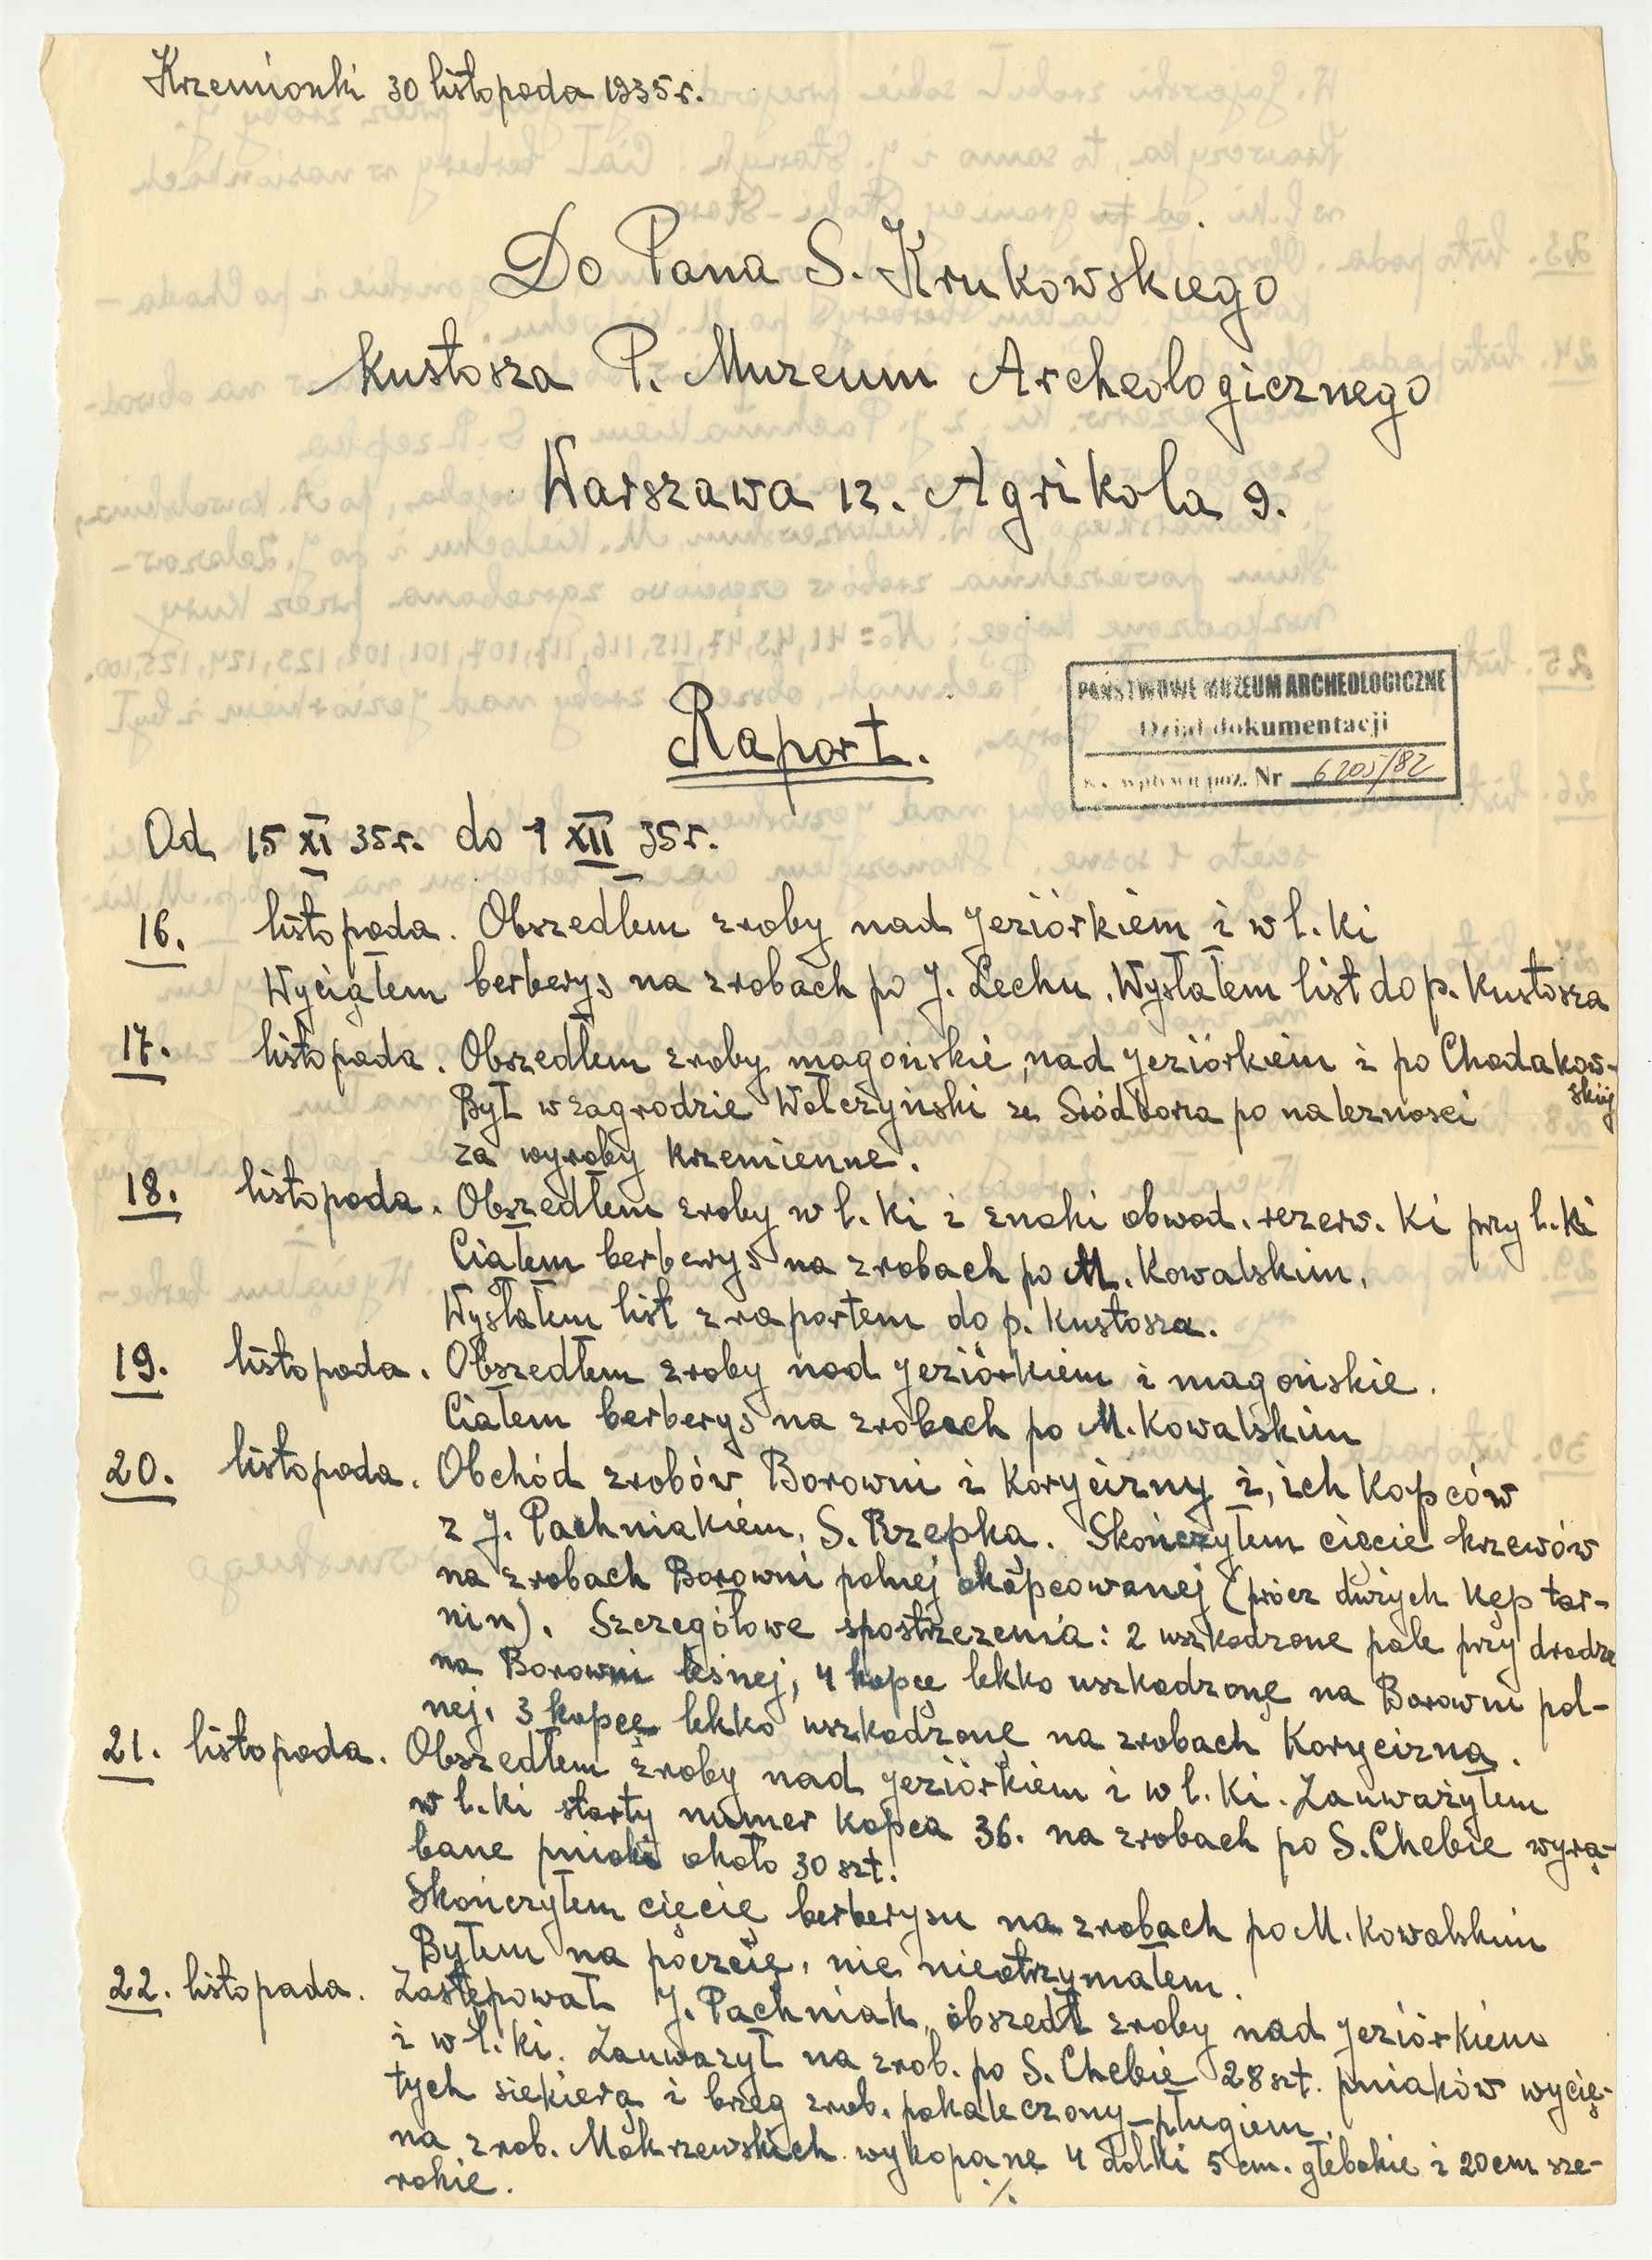 Krzemionki 30 listopada 1935 r.
Do Pana S. Krukowskiego
Kustosza P. Muzeum Archeologicznego
Warszawa 12. Agrikola 9.
PAŃSTWOWE MUZEUM ARCHEOLOGICZNE
Dział dokumentacji
wpływu poz. Nr 6205/82
Raport.
Od 15 XI 35 r. do 1 XII 35 r.
16. listopada. Obszedłem zroby nad Jeziórkiem i w l. Ki
Wyciąłem berberys na zrobach po J. Lechu. Wysłałem list do p. Kustosza
17. listopada. Obszedłem zroby magońskie, nad Jeziórkiem i po Chodakow-
skij
Był w zagrodzie Wołczyński ze Śródbora po naleznosci
za wyroby krzemienne.
18. listopada. Obszedłem zroby w l. Ki i znaki obwod. rezerw. Ki przy l. Ki
Ciąłem berberys na zrobach po M. Kowalskim.
Wysłałem list z raportem do p. Kustosza.
19. listopada. Obszedłem zroby nad Jeziórkiem i magońskie.
Ciąłem berberys na zrobach po M. Kowalskim
20. listopada. Obchód zrobów Borowni i Korycizny i, ich Kopców
z J. Pachniakiem, S. Rzepka. Skończyłem cięcie krzewów
na zrobach Borowni polnej okopcowanej (prócz dużych Kęp tar-
nin). Szczegółowe spostrzezenia: 2 uszkodzone pale przy drodze
na Borowni leśnej, 4 kopce lekko uszkodzonę na Borowni pol-
nej. 3 kopce lekko uszkodzonę na zrobach Korycizna.
21. listopada. Obszedłem zroby nad Jeziórkiem i w l. Ki. Zauważyłem
w l. Ki starty numer Kopca 36. na zrobach po S. Chebie wyrą-
bane pniaki około 30 szt.
Skończyłem cięcię berberysu na zrobach po M. Kowalskim
Byłem na poczcię, nic nieotrzymałem.
22. listopada. Zastępował J. Pachniak, obszedł zroby nad Jeziórkiem
i w l. Ki. Zauwazył na zrob. po S. Chebie 28 szt. pniaków wycię-
tych siekierą i brzeg zrob. pokaleczony – pługiem.
na zrob. Mokrzewskich wykopane 4 dołki 5 cm. głębokie i 20 cm sze-
rokie.
./.